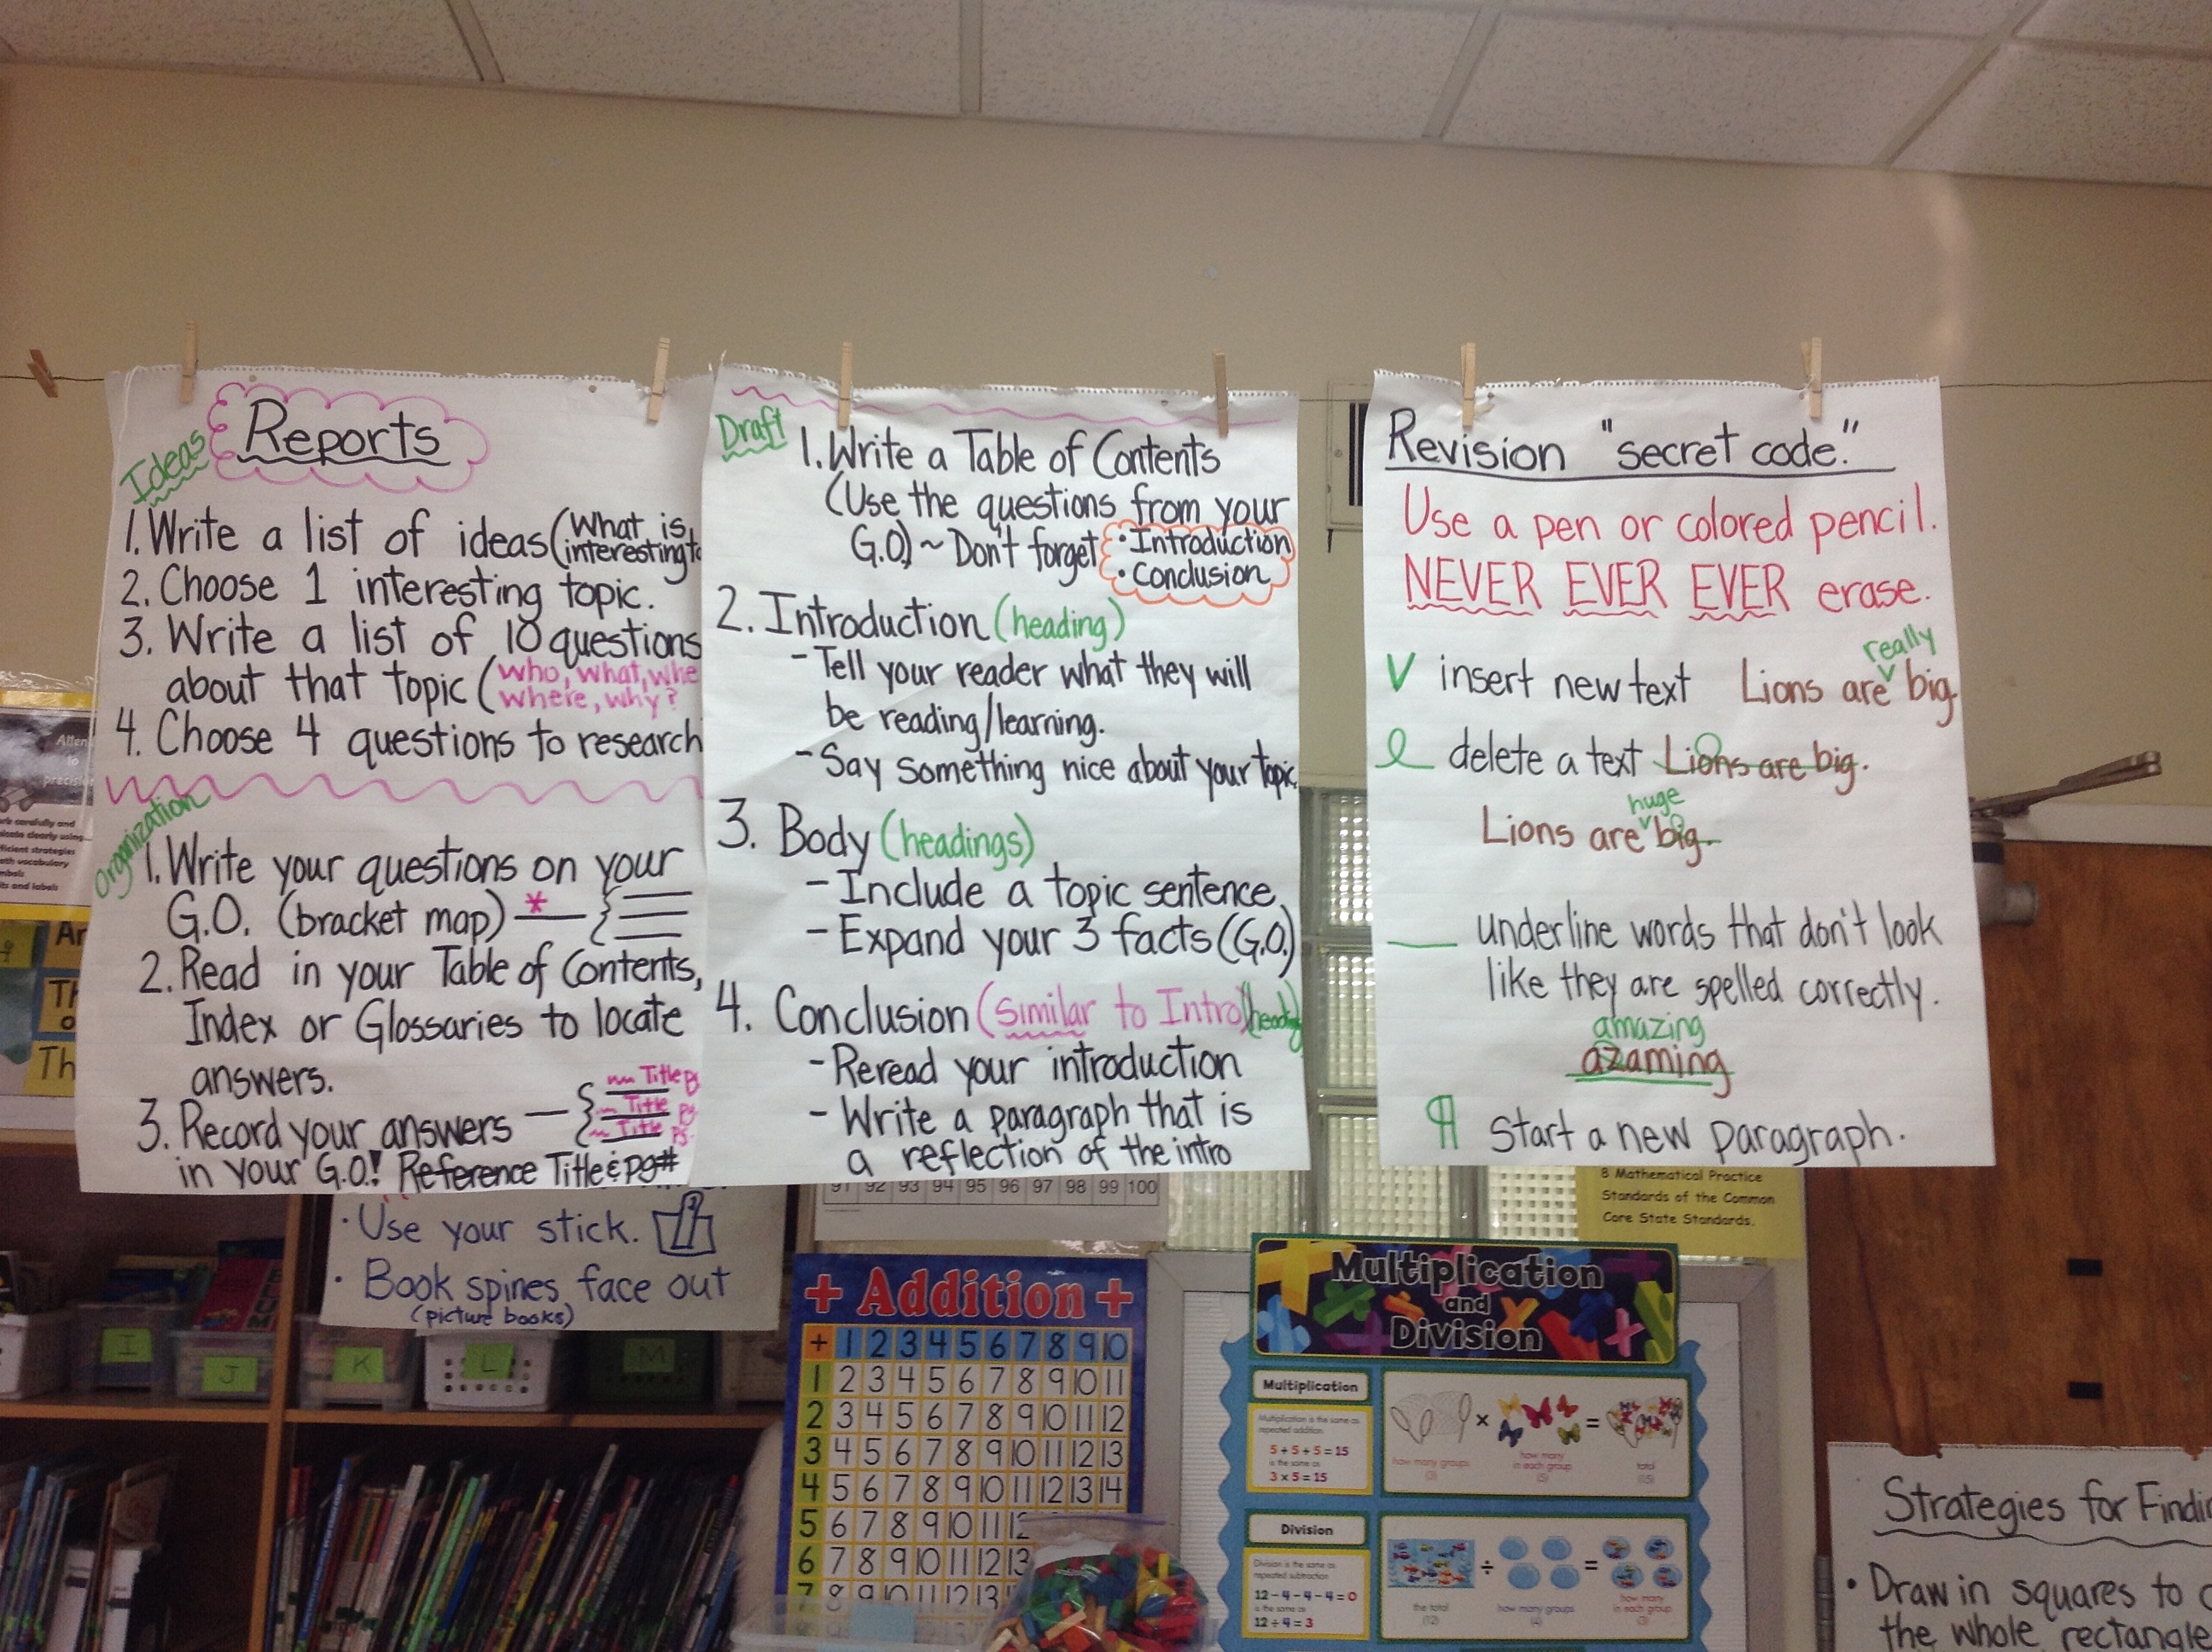 Reports
Ideas
1. Write a list of ideas (What is
interesting
2. Choose 1 interesting topic.
3. Write a list of 10 questions
about that topic (who, what,
where, why?
4. Choose 4 questions to research
Organization
1. Write your questions on your
G.O. (bracket map) *
2. Read in your Table of Contents,
Index or Glossaries to locate
answers.
3. Record your answers
Title pg
Title pg
Title pg.
in your G.O.! Reference Title & pg#
Draft
1. Write a Table of Contents
(Use the questions from your
G.O.) ~ Don't forget • Introduction
• Conclusion
2. Introduction (heading)
- Tell your reader what they will
be reading/learning.
- Say something nice about your topic
3. Body (headings)
- Include a topic sentence
- Expand your 3 facts (G.O.)
4. Conclusion (similar to Intro)
- Reread your introduction
- Write a paragraph that is
a reflection of the intro
Revision "secret code."
Use a pen or colored pencil.
NEVER EVER EVER erase.
really
V insert new text Lions are big.
delete a text Lions are big.
huge
Lions are big.
underline words that don't look
like they are spelled correctly.
amazing
azaming
¶ Start a new paragraph.
• Use your stick.
• Book spines face out
(picture books)
I
J
K
L
M
91 92 93 94 95 96 97 98 99 100
8 Mathematical Practice
Standards of the Common
Core State Standards.
+ Addition +
+ 1 2 3 4 5 6 7 8 9 10
1 2 3 4 5 6 7 8 9 10 11
2 3 4 5 6 7 8 9 10 11 12
3 4 5 6 7 8 9 10 11 12 13
4 5 6 7 8 9 10 11 12 13 14
5 6 7 8 9 10 11 12
6 7 8 9 10 11 12 13
7 8 9 10 11 12 13
Multiplication
and
Division
Multiplication
Multiplication is the same as
repeated addition
5 + 5 + 5 = 15
is the same as
3 x 5 = 15
x =
how many groups
(3)
how many
in each group
(5)
total
(15)
Division
Division is the same as
repeated subtraction
12 - 4 - 4 - 4 = 0
is the same as
12 ÷ 4 = 3
÷ =
the total
(12)
how many groups
(4)
how many
in each group
(3)
Strategies for
• Draw in squares to
the whole